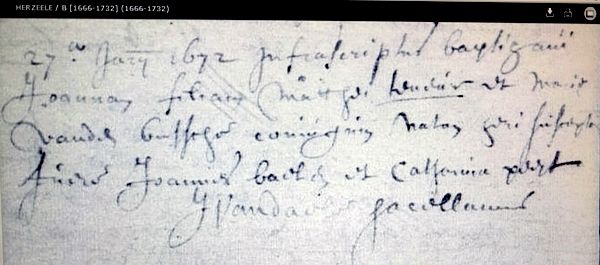 HERZEELE / B [1666-1732] (1666-1732)
27a Jary 1672 Infrascriptus baptizavi
Joannam filiam Matthei et Marie
vanden bussche coniugum natam heri susceper
fuere Joannes et Catharina
sacellanus